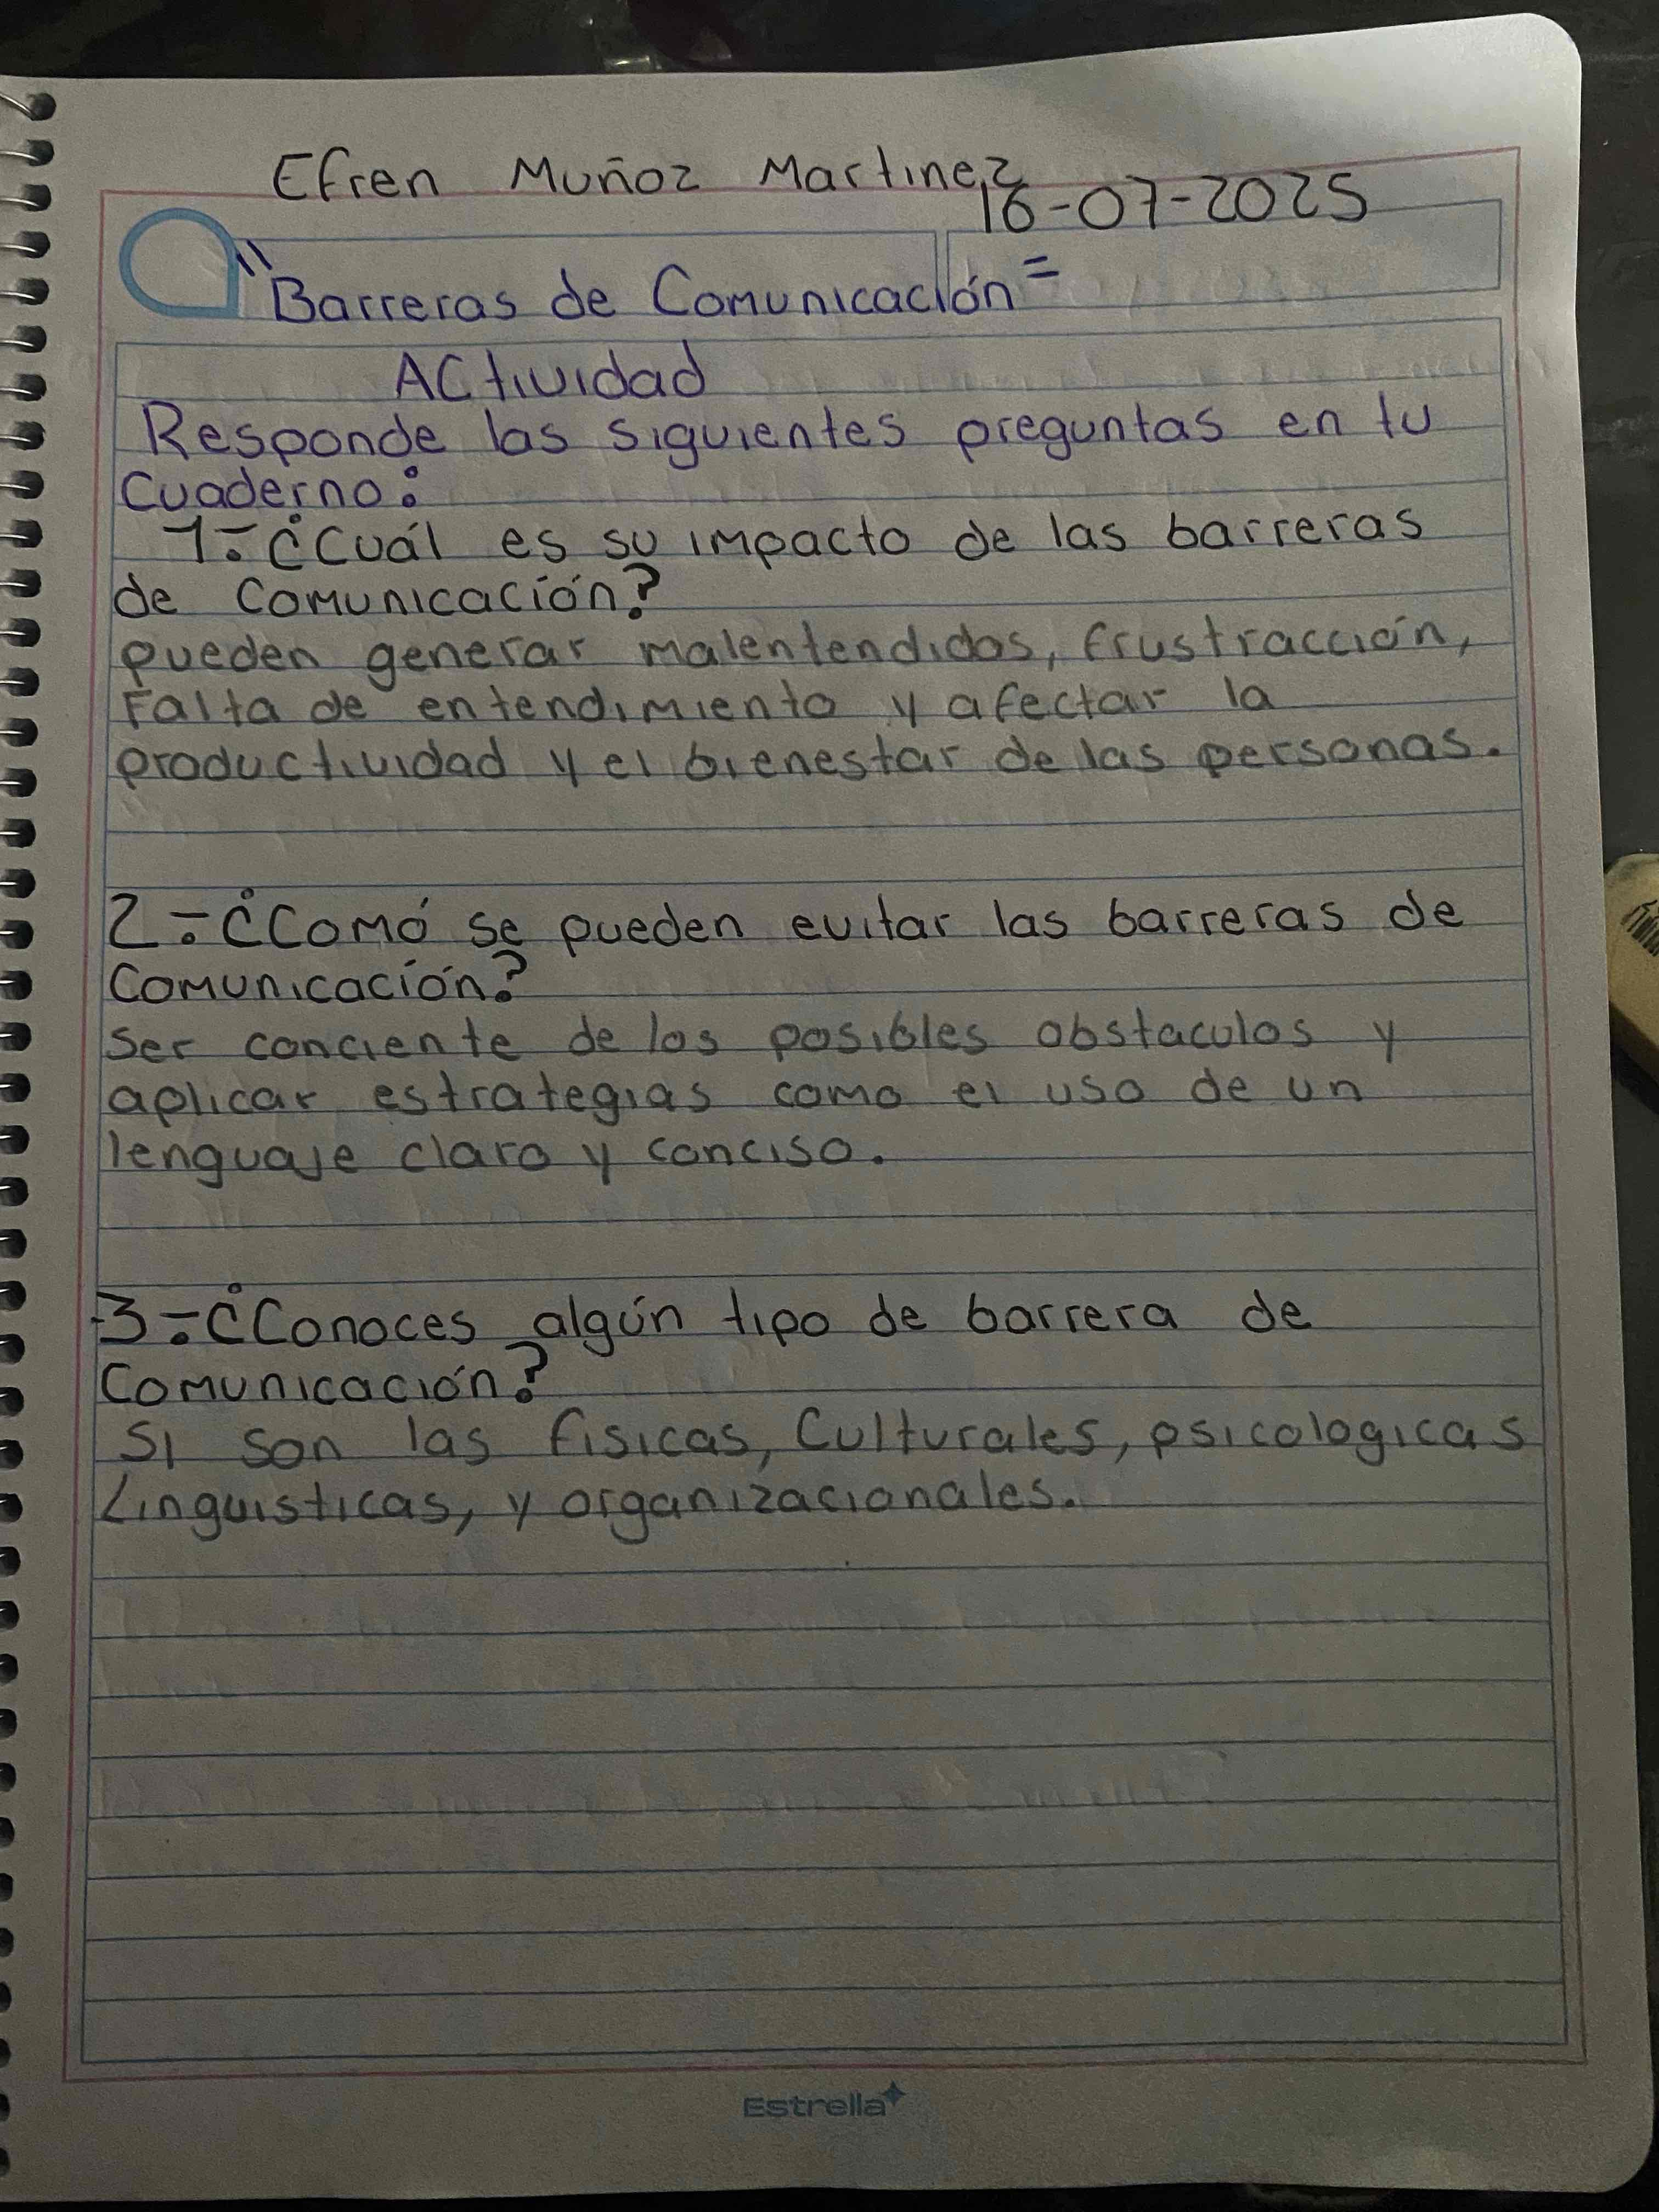 Efren Muñoz Martinez
16-07-2025
"Barreras de Comunicación"
ACtividad
Responde las siguientes preguntas en tu
Cuaderno:
1.-¿Cuál es su impacto de las barreras
de Comunicación?
pueden generar malentendidos, frustracción,
Falta de entendimiento y afectar la
productividad y el bienestar de las personas.
2.-¿Comó se pueden evitar las barreras de
Comunicación?
Ser conciente de los posibles obstaculos y
aplicar estrategias como el uso de un
lenguaje claro y conciso.
3.-¿Conoces algún tipo de barrera de
Comunicación?
Si son las fisicas, Culturales, psicologicas
Linguisticas, y organizacionales.
Estrella